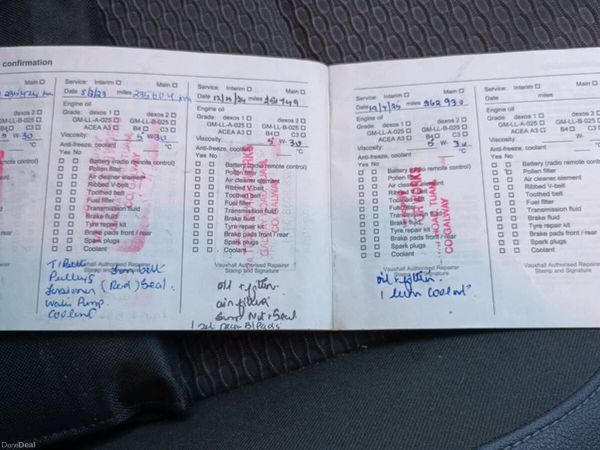 confirmation
Main
Service: Interim Main
Date 8/2/23 miles
Engine oil
Grade: dexos 1 dexos 2
GM-LL-A-025 GM-LL-B-025
ACEA A3 B4 C3
Viscosity: 5 W- 30
Anti-freeze, coolant °C
Yes No
Battery (radio remote control)
Pollen filter
Air cleaner element
Ribbed V-belt
Toothed belt
Fuel filter
Transmission fluid
Brake fluid
Tyre repair kit
Brake pads front / rear
Spark plugs
Coolant
Vauxhall Authorised Repairer
Stamp and Signature
T/Belt
Pulleys
Tensioner (Rad) Seal.
Water Pump
Coolant
Service: Interim Main
Date miles
Engine oil
Grade: dexos 1 dexos 2
GM-LL-A-025 GM-LL-B-025
ACEA A3 B4 C3
Viscosity: 5 W- 30
Anti-freeze, coolant °C
Yes No
Battery (radio remote control)
Pollen filter
Air cleaner element
Ribbed V-belt
Toothed belt
Fuel filter
Transmission fluid
Brake fluid
Tyre repair kit
Brake pads front / rear
Spark plugs
Coolant
Vauxhall Authorised Repairer
Stamp and Signature
CO. GALWAY
oil + filter
air filter
Sump Nut + Seal
1 set rear B/Pads
Service: Interim Main
Date miles 262 930
Engine oil
Grade: dexos 1 dexos 2
GM-LL-A-025 GM-LL-B-025
ACEA A3 B4 C3
Viscosity: 5 W- 30
Anti-freeze, coolant °C
Yes No
Battery (radio remote control)
Pollen filter
Air cleaner element
Ribbed V-belt
Toothed belt
Fuel filter
Transmission fluid
Brake fluid
Tyre repair kit
Brake pads front / rear
Spark plugs
Coolant
Vauxhall Authorised Repairer
Stamp and Signature
TUAM,
CO. GALWAY
oil + filter
Coolant
Service: Interim Main
Date miles
Engine oil
Grade: dexos 1 dexos 2
GM-LL-A-025 GM-LL-B-025
ACEA A3 B4 C3
Viscosity: W-
Anti-freeze, coolant °C
Yes No
Battery (radio remote control)
Pollen filter
Air cleaner element
Ribbed V-belt
Toothed belt
Fuel filter
Transmission fluid
Brake fluid
Tyre repair kit
Brake pads front / rear
Spark plugs
Coolant
Vauxhall Authorised Repairer
Stamp and Signature
DoneDeal